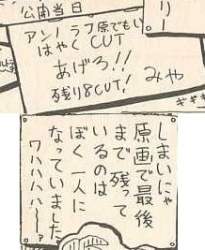 リー
公開当日
アンノラフ原でもい
はやくCUT
あげろ!!
残り8CUT!
みや
ギギギ
しまいにゃ
原画で最後
まで残って
いるのは
ぼく一人に
なっていました
ワハハハハ〜〜?